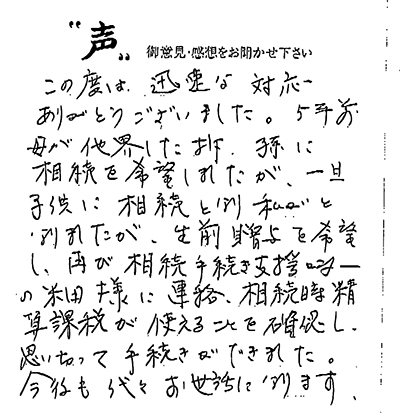 "声" 御意見・感想をお聞かせ下さい
この度は、迅速な対応
ありがとうございました。5年前
母が他界した折、孫に
相続を希望しれたが、一旦
子供に相続と別 私がと
別れたが、生前贈与を希望
し、再び相続手続き支援
の米田様に連絡、相続時精
算課税が使えることを確認し、
思い切って手続きができました。
今後も代々お世話に別ます、